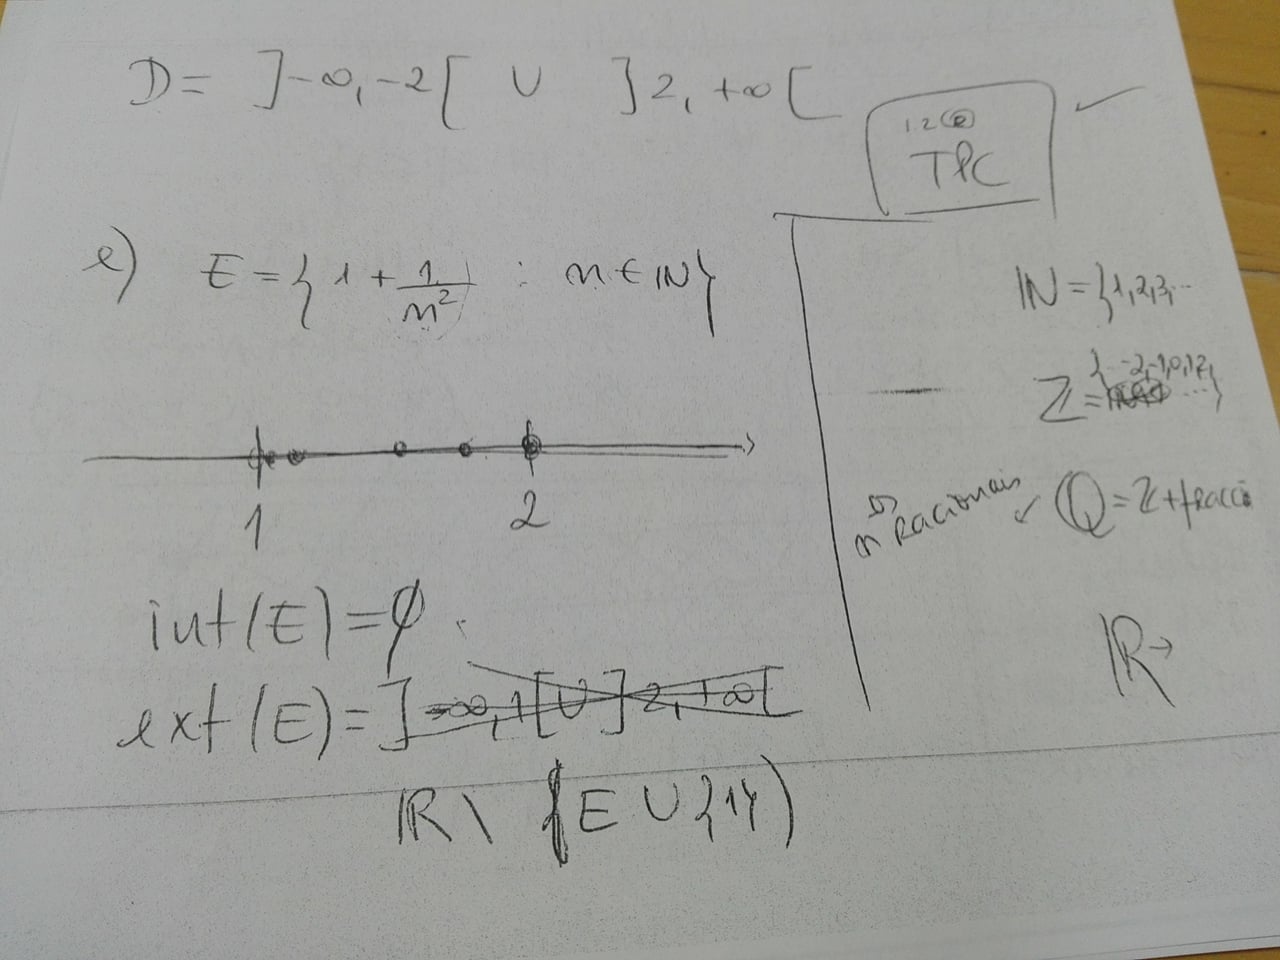 D = ]-∞, -2[ ∪ ]2, +∞[
1.2(e)
TPC
e) E = {1 + 1/n² : n ∈ IN}
1 2
int(E) = ∅.
ext(E) = ]-∞, 1[ ∪ ]2, +∞[
IR \ (E ∪ {1})
IN = {1,2,3,...
Z = {...-2,-1,0,1,2, ...}
nos Racionais ✓ Q = Z + fracci
IR →